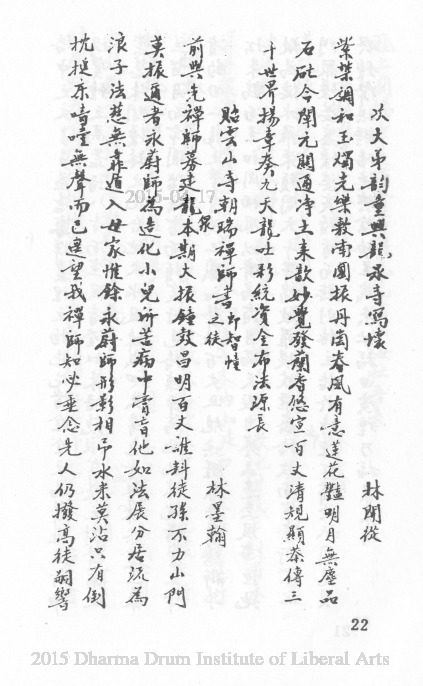 次大弟韵重興龍泉寺寫懷
林開從
紫葉調和玉燭光樂教南園振丹崗春風有志蓮花豔明月無塵品
石砥今開元關通淨土來歆妙覺發蘭香悠宣百丈清規顯茶傳三
千世界揚章奏九天龍吐彩統資金布法源長
貽雲山寺朝瑞禪師書即智惺之徒
林星翰
前與先禪師募建龍泉本期大振鐘鼓昌明百丈誰料徒孫不力山門
莫振適者永蔚師為造化小兒所苦病中膏盲他如法展分居流為
浪子法慈無靠遁入母家惟餘永蔚師形影相弔水米莫沾只有倒
枕捶床喑噎無聲而已還望我禪師知必垂念先人仍撥高徒嗣響
22
2015-04-17
2015 Dharma Drum Institute of Liberal Arts